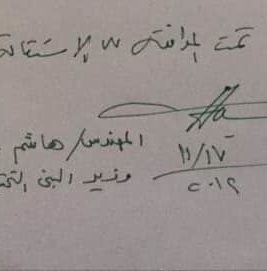 تمت الموافقة على الاستقالة
المهندس/ هاشم
١١/١٧
وزير البنى التحت
٢٠١٩